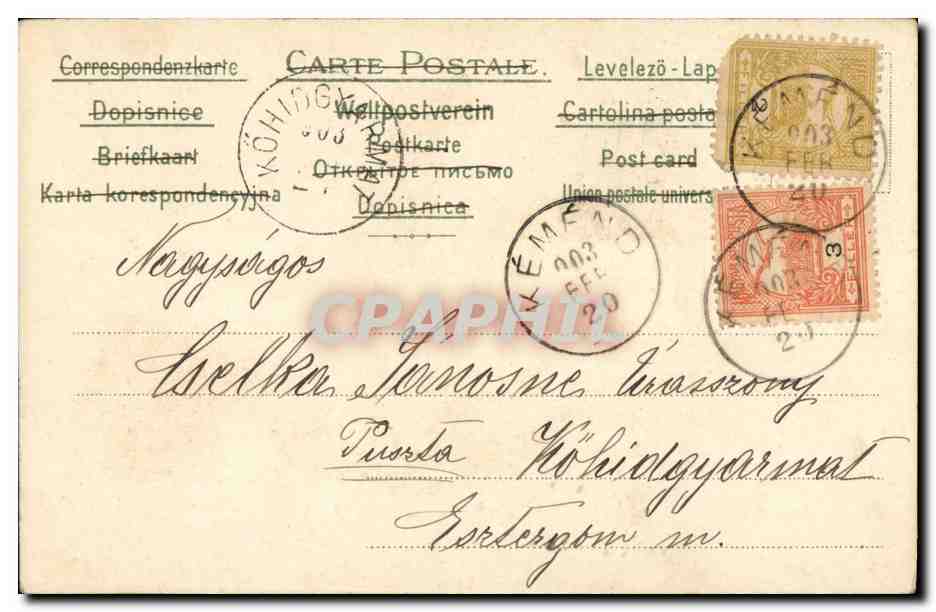 Correspondenzkarte
Dopisnice
Briefkaart
Karta korespondencyjna
CARTE POSTALE.
Weltpostverein
Postkarte
Открытое письмо
Dopisnica
Levelezö-Lap
Cartolina posta
Post card
Union postale univers
KŐHIDGYARMAT
903
KÉMÉND
903
FEB
20
KÉMÉND
903
FEB
20
KÉMÉND
903
FEB
20
2
3
Nagyságos
Cselka Jánosne Úrasszony
Puszta Kőhidgyarmat
Esztergom m.
CPAPHIL